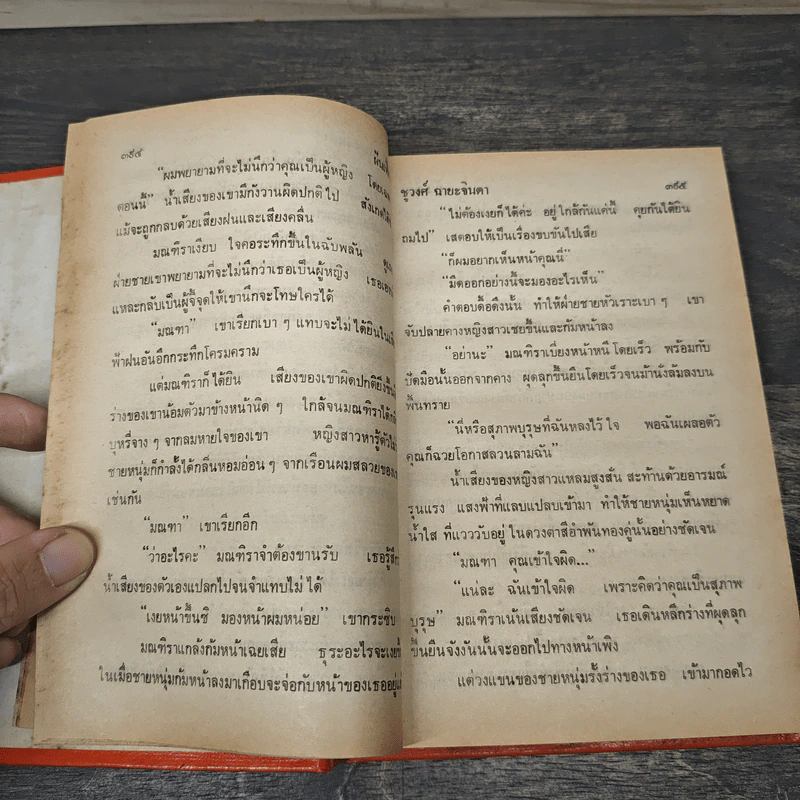 ๓๙๔
“ผมพยายามที่จะไม่นึกว่าคุณเป็นผู้หญิง
ตอนนี้” น้ำเสียงของเขามีกังวานผิดปกติไป
แม้จะถูกกลบด้วยเสียงฝนและเสียงคลื่น
มณฑิราเงียบ ใจคอระทึกขึ้นในฉับพลัน
ฝ่ายชายเขาพยายามที่จะไม่นึกว่าเธอเป็นผู้หญิง
แหละกลับเป็นผู้จี้จุดให้เขานึกจะโทษใครได้
“มณฑา” เขาเรียกเบา ๆ แทบจะไม่ได้ยินใน
ฟ้าฝนอันอึกกระทึกโครมคราม
แต่มณฑิราก็ได้ยิน เสียงของเขาผิดปกติยิ่งขึ้น
ร่างของเขาน้อมตัวมาข้างหน้านิด ๆ ใกล้จนมณฑิราได้
บุหรี่จาง ๆ จากลมหายใจของเขา หญิงสาวหารู้ตัวไม่
ชายหนุ่มก็กำลังได้กลิ่นหอมอ่อน ๆ จากเรือนผมสลวยของ
เช่นกัน
“มณฑา” เขาเรียกอีก
“ว่าอะไรคะ” มณฑิราจำต้องขานรับ เธอรู้สึก
น้ำเสียงของตัวเองแปลกไปจนจำแทบไม่ได้
“เงยหน้าขึ้นซิ มองหน้าผมหน่อย” เขากระซิบ
มณฑิราแกล้งก้มหน้าเฉยเสีย ธุระอะไรจะเงย
ในเมื่อชายหนุ่มก้มหน้าลงมาเกือบจะจ่อกับหน้าของเธออยู่
ชูวงศ์ ฉายะจินดา
๓๙๕
“ไม่ต้องเงยก็ได้ค่ะ อยู่ใกล้กันแค่นี้ คุยกันได้ยิน
ถมไป” เสตอบให้เป็นเรื่องขบขันไปเสีย
“ก็ผมอยากเห็นหน้าคุณนี่”
“มืดออกอย่างนี้จะมองอะไรเห็น”
คำตอบดื้อดึงนั้น ทำให้ฝ่ายชายหัวเราะเบา ๆ เขา
จับปลายคางหญิงสาวเชยขึ้นและก้มหน้าลง
“อย่านะ” มณฑิราเบี่ยงหน้าหนีโดยเร็ว พร้อมกับ
ปัดมือนั้นออกจากคาง ผุดลุกขึ้นยืนโดยเร็วจนม้านั่งล้มลงบน
พื้นทราย
“นี่หรือสุภาพบุรุษที่ฉันหลงไว้ใจ พอฉันเผลอตัว
คุณก็ฉวยโอกาสลวนลามฉัน”
น้ำเสียงของหญิงสาวแหลมสูงสั่น สะท้านด้วยอารมณ์
รุนแรง แสงฟ้าที่แลบแปลบเข้ามา ทำให้ชายหนุ่มเห็นหยาด
น้ำใส ที่แวววับอยู่ในดวงตาสีอำพันทองคู่นั้นอย่างชัดเจน
“มณฑา คุณเข้าใจผิด...”
“แน่ละ ฉันเข้าใจผิด เพราะคิดว่าคุณเป็นสุภาพ
บุรุษ” มณฑิราเน้นเสียงชัดเจน เธอเดินหลีกร่างที่ผุดลุก
ขึ้นยืนจังงังนั้นจะออกไปทางหน้าเพิง
แต่วงแขนของชายหนุ่มรั้งร่างของเธอ เข้ามากอดไว้